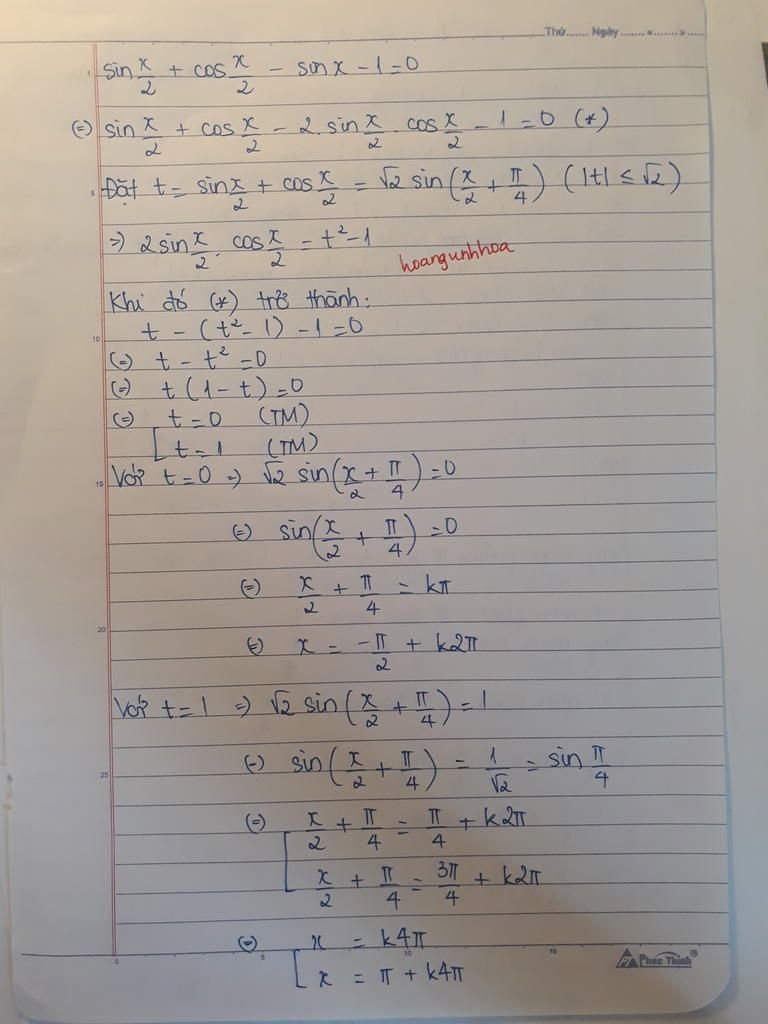 Thứ....... Ngày ...................
sin x/2 + cos x/2 - sin x - 1 = 0
(=) sin x/2 + cos x/2 - 2. sin x/2 . cos x/2 - 1 = 0 (*)
Đặt t = sin x/2 + cos x/2 = √2 sin(x/2 + π/4) (|t| ≤ √2)
=) 2 sin x/2 . cos x/2 = t² - 1
hoangunhhoa
Khi đó (*) trở thành:
t - (t² - 1) - 1 = 0
(=) t - t² = 0
(=) t (1 - t) = 0
(=) [ t = 0 (TM)
t = 1 (TM)
Với t = 0 =) √2 sin(x/2 + π/4) = 0
(=) sin(x/2 + π/4) = 0
(=) x/2 + π/4 = kπ
(=) x = -π/2 + k2π
Với t = 1 =) √2 sin(x/2 + π/4) = 1
(=) sin(x/2 + π/4) = 1/√2 = sin π/4
(=) [ x/2 + π/4 = π/4 + k2π
x/2 + π/4 = 3π/4 + k2π
(=) [ x = k4π
x = π + k4π
Phúc Thịnh®
5
10
15
20
25
0 5 10 15